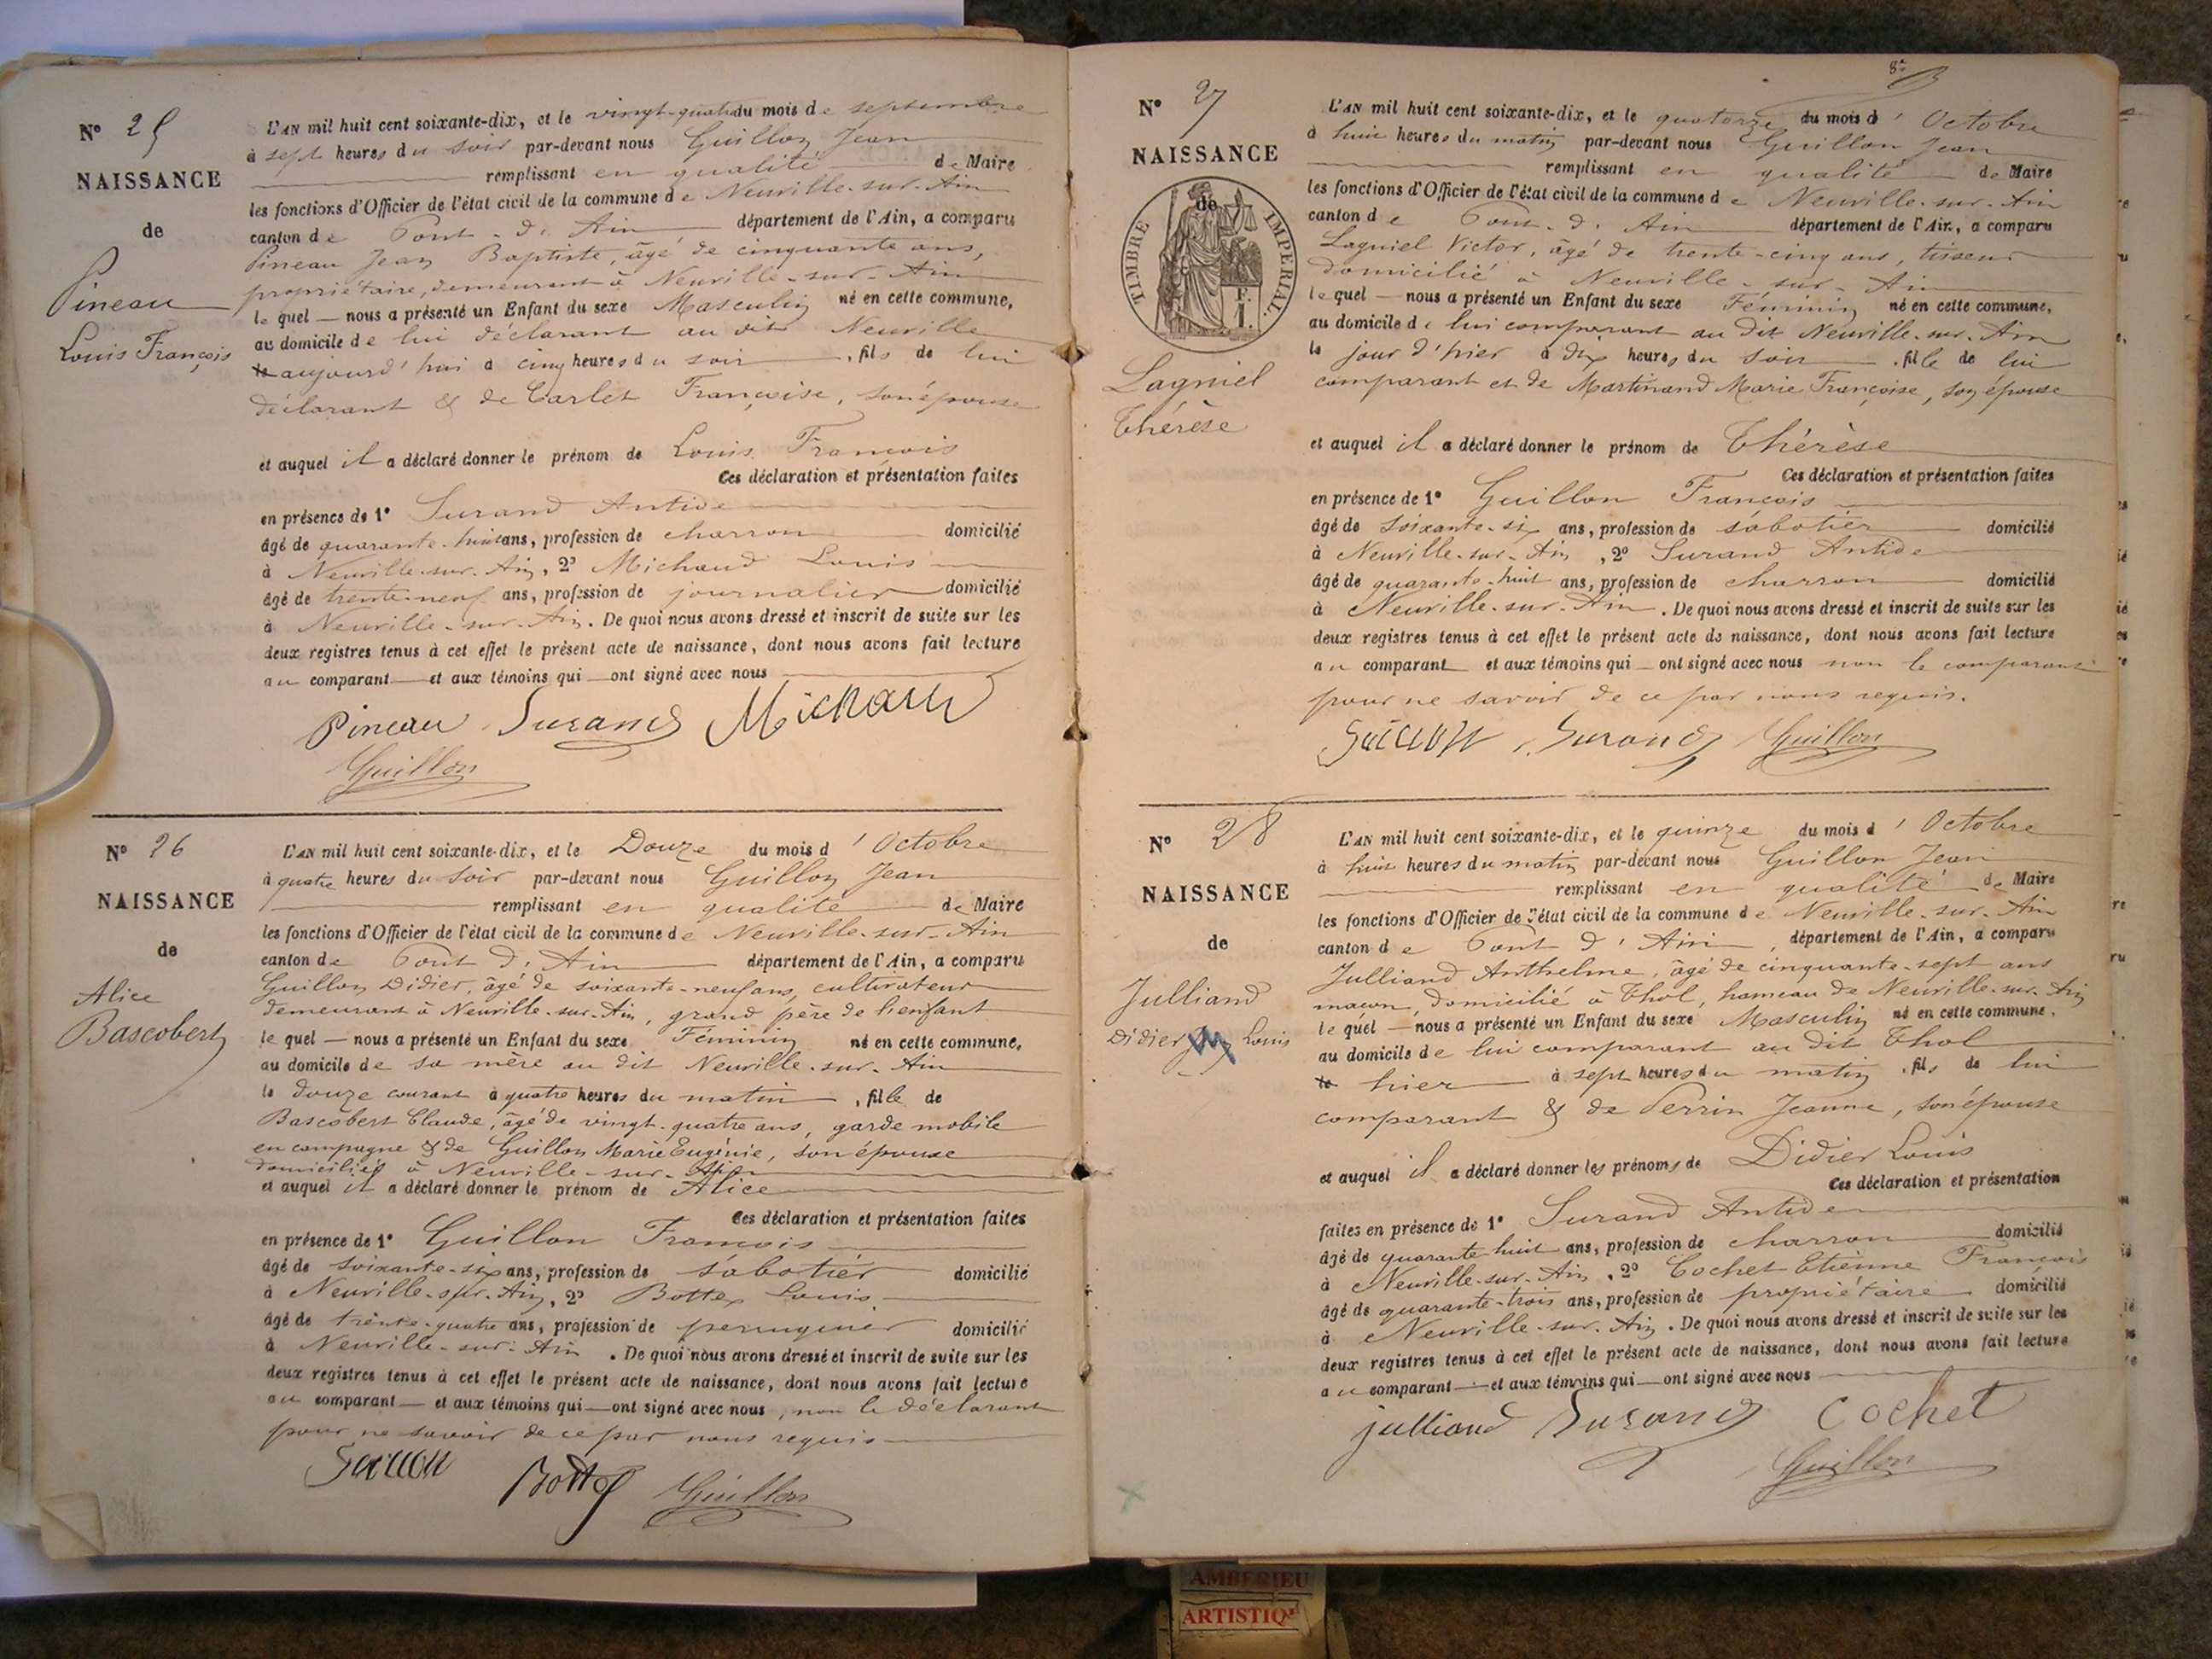 N° 25
NAISSANCE
de
Pineau
Louis François
L'AN mil huit cent soixante-dix, et le vingt-quatre du mois de septembre
à sept heures du soir par-devant nous Guillon Jean
remplissant en qualité de Maire
les fonctions d'Officier de l'état civil de la commune de Neuville-sur-Ain
canton de Pont-d'Ain département de l'Ain, a comparu
Pineau Jean Baptiste, âgé de cinquante ans,
propriétaire, demeurant à Neuville-sur-Ain
lequel nous a présenté un Enfant du sexe Masculin né en cette commune,
au domicile de lui déclarant au dit Neuville
le aujourd'hui à cinq heures du soir, fils de lui
déclarant & de Carlet Françoise, son épouse
et auquel il a déclaré donner le prénom de Louis François
Ces déclaration et présentation faites
en présence de 1° Surand Antide
âgé de quarante-huit ans, profession de charron domicilié
à Neuville-sur-Ain, 2° Michaud Louis
âgé de trente-neuf ans, profession de journalier domicilié
à Neuville-sur-Ain. De quoi nous avons dressé et inscrit de suite sur les
deux registres tenus à cet effet le présent acte de naissance, dont nous avons fait lecture
au comparant et aux témoins qui ont signé avec nous
Pineau Surand Michaud
Guillon
N° 26
NAISSANCE
de
Alice
Bascobert
L'AN mil huit cent soixante-dix, et le Douze du mois d'Octobre
à quatre heures du soir par-devant nous Guillon Jean
remplissant en qualité de Maire
les fonctions d'Officier de l'état civil de la commune de Neuville-sur-Ain
canton de Pont d'Ain département de l'Ain, a comparu
Guillon Didier, âgé de soixante-neuf ans, cultivateur
demeurant à Neuville-sur-Ain, grand père de l'enfant
lequel nous a présenté un Enfant du sexe Féminin né en cette commune,
au domicile de sa mère au dit Neuville-sur-Ain
le douze courant à quatre heures du matin, fille de
Bascobert Claude, âgé de vingt-quatre ans, garde mobile
en campagne & de Guillon Marie Eugénie, son épouse
domiciliés à Neuville-sur-Ain
et auquel il a déclaré donner le prénom de Alice
Ces déclaration et présentation faites
en présence de 1° Guillon François
âgé de soixante-six ans, profession de sabotier domicilié
à Neuville-sur-Ain, 2° Bottex Louis
âgé de trente-quatre ans, profession de perruquier domicilié
à Neuville-sur-Ain. De quoi nous avons dressé et inscrit de suite sur les
deux registres tenus à cet effet le présent acte de naissance, dont nous avons fait lecture
au comparant et aux témoins qui ont signé avec nous, non le déclarant
pour ne savoir de ce par nous requis
Guillon Bottex Guillon
N° 27
NAISSANCE
de
TIMBRE IMPÉRIAL
Lagniel
Thérèse
L'AN mil huit cent soixante-dix, et le quatorze du mois d'Octobre
à huit heures du matin par-devant nous Guillon Jean
remplissant en qualité de Maire
les fonctions d'Officier de l'état civil de la commune de Neuville-sur-Ain
canton de Pont-d'Ain département de l'Ain, a comparu
Lagniel Victor, âgé de trente-cinq ans, tisseur
domicilié à Neuville-sur-Ain
lequel nous a présenté un Enfant du sexe Féminin né en cette commune,
au domicile de lui comparant au dit Neuville-sur-Ain
le jour d'hier à dix heures du soir, fille de lui
comparant et de Martinand Marie Françoise, son épouse
et auquel il a déclaré donner le prénom de Thérèse
Ces déclaration et présentation faites
en présence de 1° Guillon François
âgé de soixante-six ans, profession de sabotier domicilié
à Neuville-sur-Ain, 2° Surand Antide
âgé de quarante-huit ans, profession de charron domicilié
à Neuville-sur-Ain. De quoi nous avons dressé et inscrit de suite sur les
deux registres tenus à cet effet le présent acte de naissance, dont nous avons fait lecture
au comparant et aux témoins qui ont signé avec nous non le comparant
pour ne savoir de ce par nous requis.
Guillon Surand Guillon
N° 28
NAISSANCE
de
Julliand
Didier Louis
L'AN mil huit cent soixante-dix, et le quinze du mois d'Octobre
à huit heures du matin par-devant nous Guillon Jean
remplissant en qualité de Maire
les fonctions d'Officier de l'état civil de la commune de Neuville-sur-Ain
canton de Pont d'Ain, département de l'Ain, a comparu
Julliand Anthelme, âgé de cinquante-sept ans
maçon, domicilié à Thol, hameau de Neuville-sur-Ain
lequel nous a présenté un Enfant du sexe Masculin né en cette commune,
au domicile de lui comparant au dit Thol
le hier à sept heures du matin, fils de lui
comparant & de Perrin Jeanne, son épouse
et auquel il a déclaré donner les prénoms de Didier Louis
Ces déclaration et présentation
faites en présence de 1° Surand Antide
âgé de quarante huit ans, profession de charron domicilié
à Neuville-sur-Ain, 2° Cochet Etienne François
âgé de quarante-trois ans, profession de propriétaire domicilié
à Neuville-sur-Ain. De quoi nous avons dressé et inscrit de suite sur les
deux registres tenus à cet effet le présent acte de naissance, dont nous avons fait lecture
au comparant et aux témoins qui ont signé avec nous
julliand Surand Cochet
Guillon
AMBERIEU
ARTISTIQ